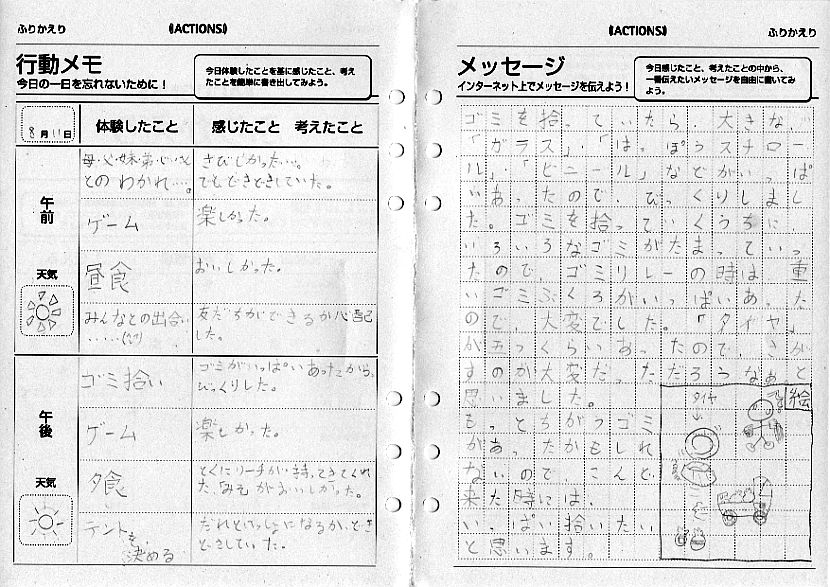 ふりかえり
《ACTIONS》
行動メモ
今日の一日を忘れないために！
今日体験したことを基に感じたこと、考え
たことを簡単に書き出してみよう。
8月11日
体験したこと
感じたこと 考えたこと
午前
天気
母・父・妹・弟・
とのわかれ…。
さびしかった…。
でもどきどきしていた。
ゲーム
楽しかった。
昼食
おいしかった。
みんなとの出合い
……(^^)
友だちができるか心配
した。
午後
天気
ゴミ拾い
ゴミがいっぱいあったから、
びっくりした。
ゲーム
楽しかった。
夕食
とくにリーチが持ってきてくれ
た、みそがおいしかった。
テントを
決める
だれといっしょになるか、どき
どきしていた。
《ACTIONS》
ふりかえり
メッセージ
インターネット上でメッセージを伝えよう！
今日感じたこと、考えたことの中から、
一番伝えたいメッセージを自由に書いてみ
よう。
ゴミを拾っていたら、大きな、
「ガラス」・「はっぽうスチロー
ル」・「ビニール」などがいっぱ
いあったので、びっくりしまし
た。ゴミを拾っていくうちに、
いろいろなゴミがたまっていっ
たので、ゴミリレーの時は、重
いゴミぶくろがいっぱいあった
ので、大変でした。「タイヤ」
が五つくらいあったので、さが
すのが大変だっただろうなぁと
思いました。
もっとちがうゴミ
があったかもしれ
ないので、こんど
来た時には、
いっぱい拾いたい
と思います。
絵
タイヤ